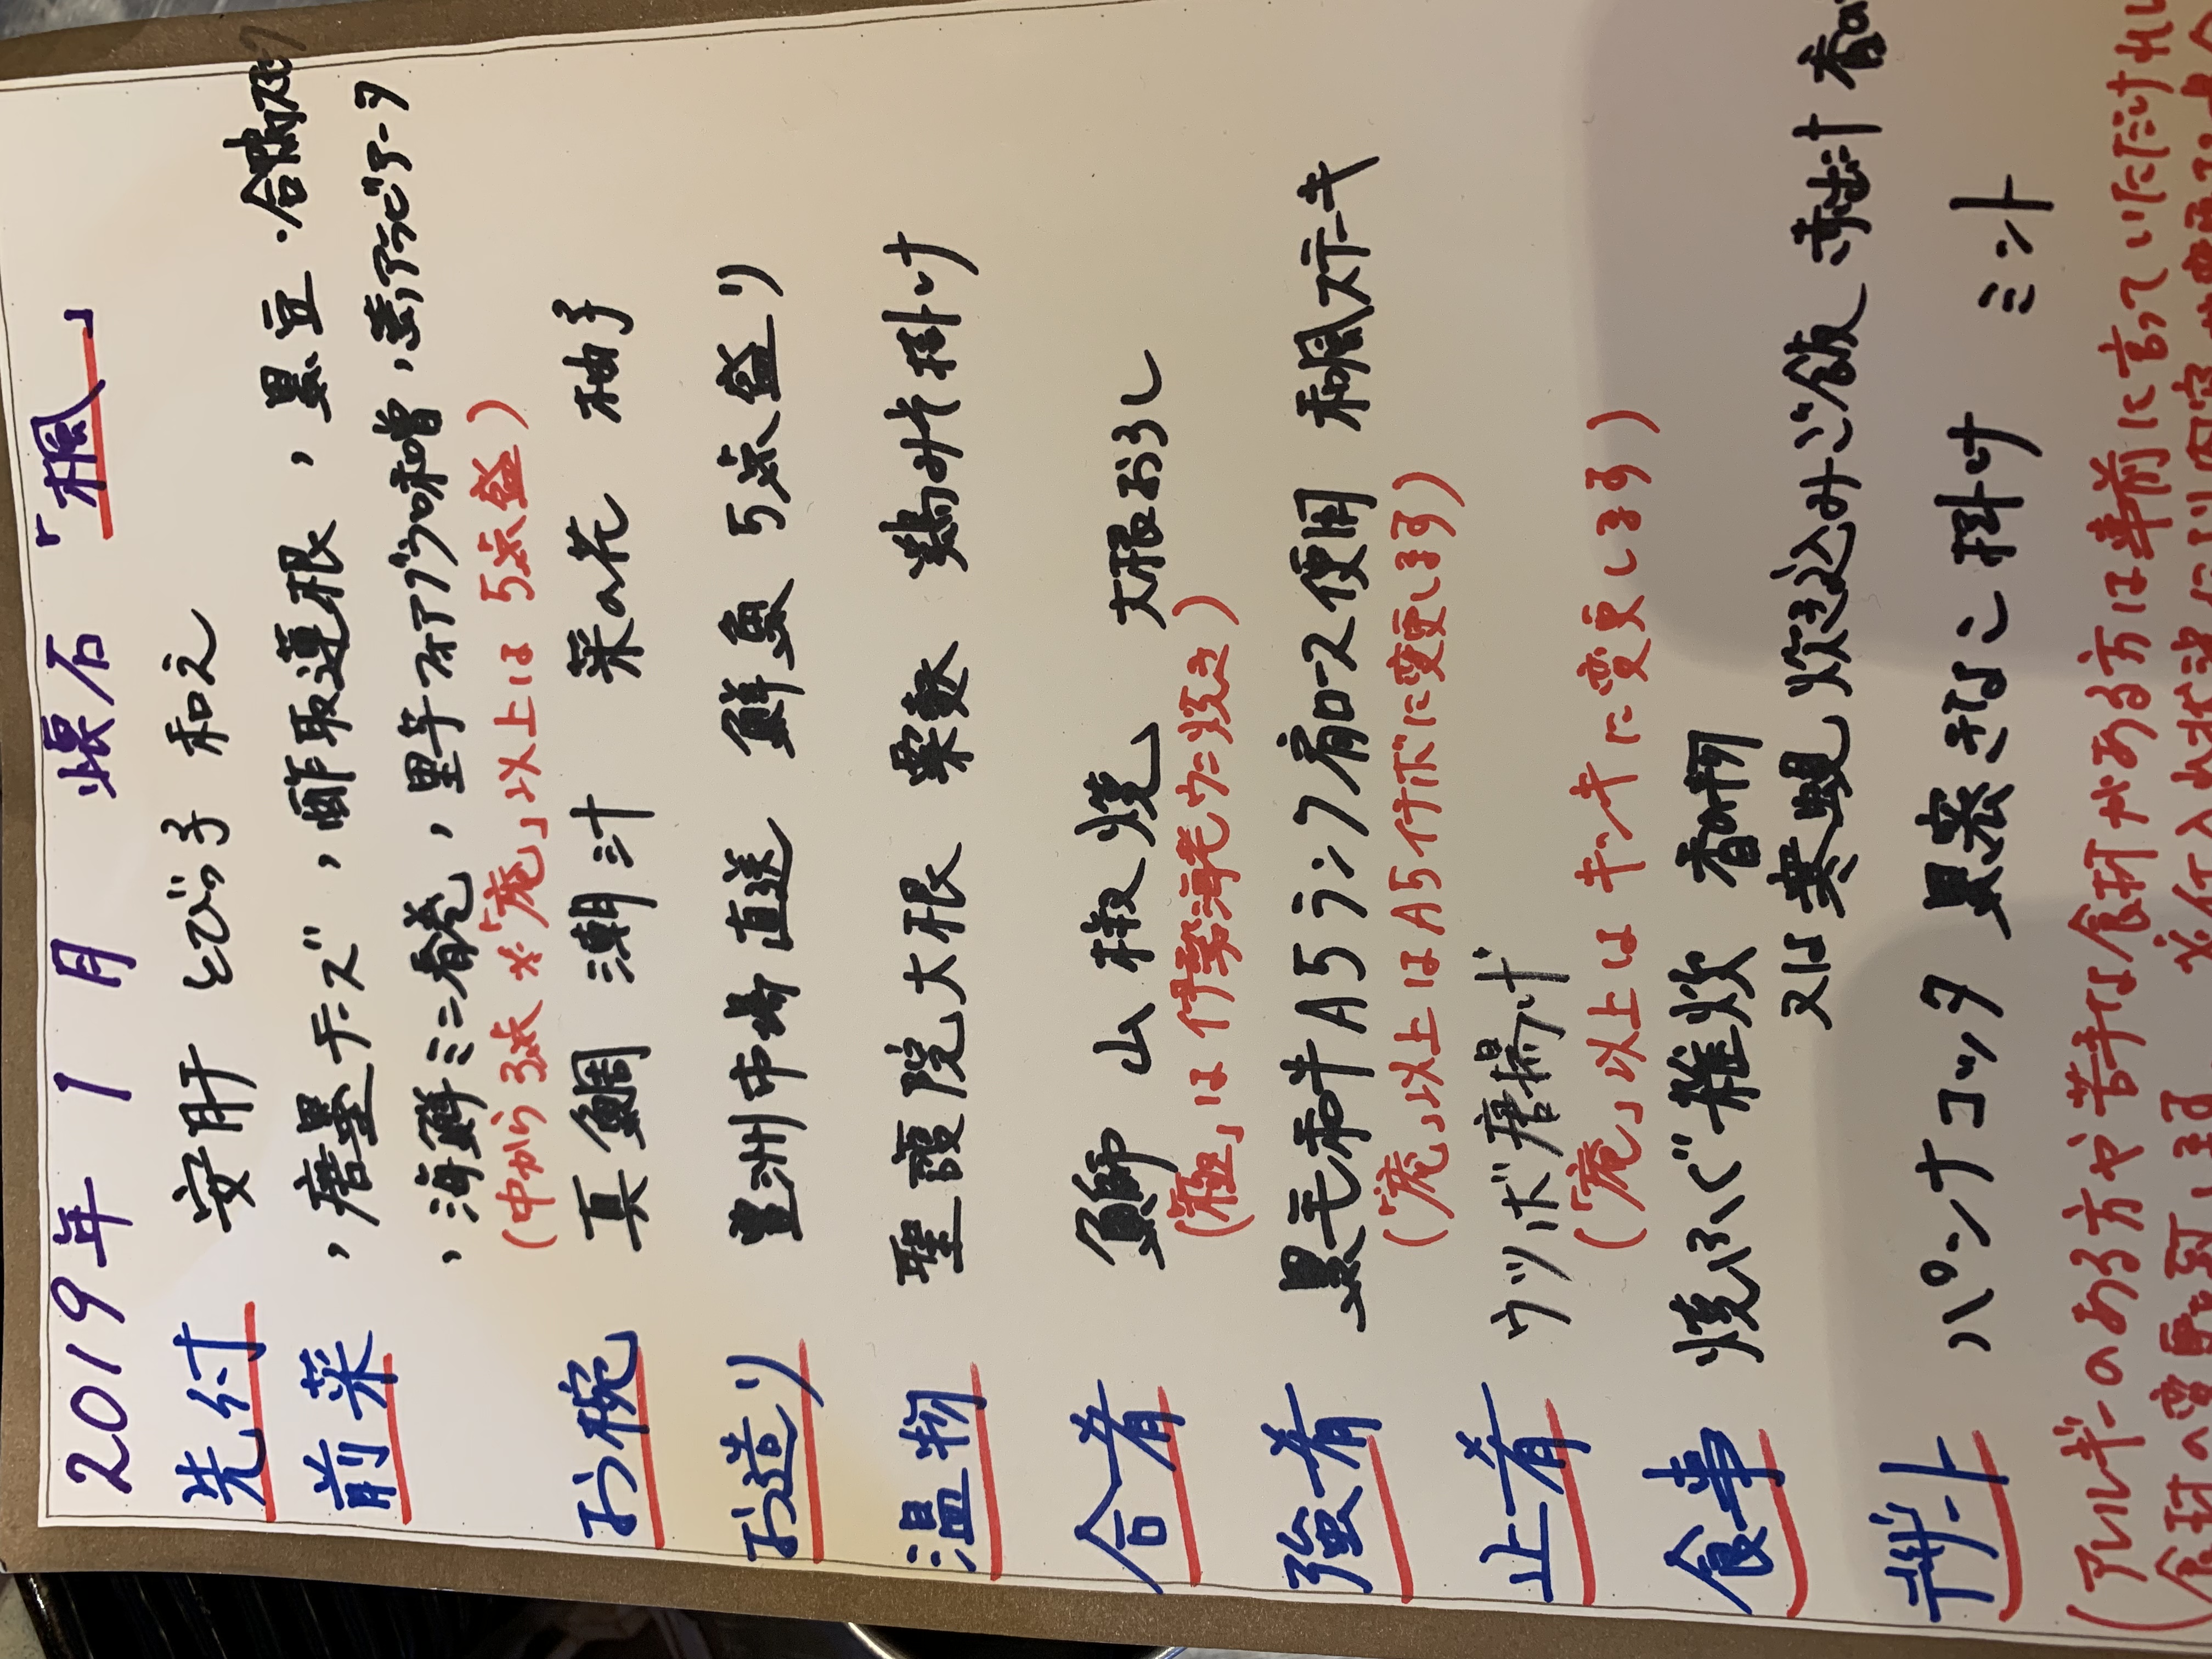 2019年 1月 懐石 「楓」
先付 安肝 とびっ子 和え
前菜 ，唐墨チーズ ，酢取蓮根 ，黒豆
，海鮮ミニ春巻 ，里芋フォアグラ味噌
(中から3点 ※「庵」以上は 5点盛)
お椀 真鯛 潮汁 菜の花 柚子
お造り 豊洲市場直送 鮮魚 5点盛り
温物 聖護院大根 粟麩 鶏みそ掛け
合肴 鰤 山椒焼 大根おろし
は 伊勢海老ウニ焼き)
強肴 黒毛和牛A5ランク肩ロース使用 和風ステーキ
(「庵」以上はA5イチボに変更します)
止肴 ウツボ唐揚げ
(「庵」以上は キンキに変更します)
食事 焼ふぐ雑炊 香の物
又は 寒蜆 炊き込みご飯 赤出汁 香の
デザート パンナコッタ 黒蜜きなこ掛け ミント
(アレルギーのある方や苦手な食材がある方は事前に言っていただけれ